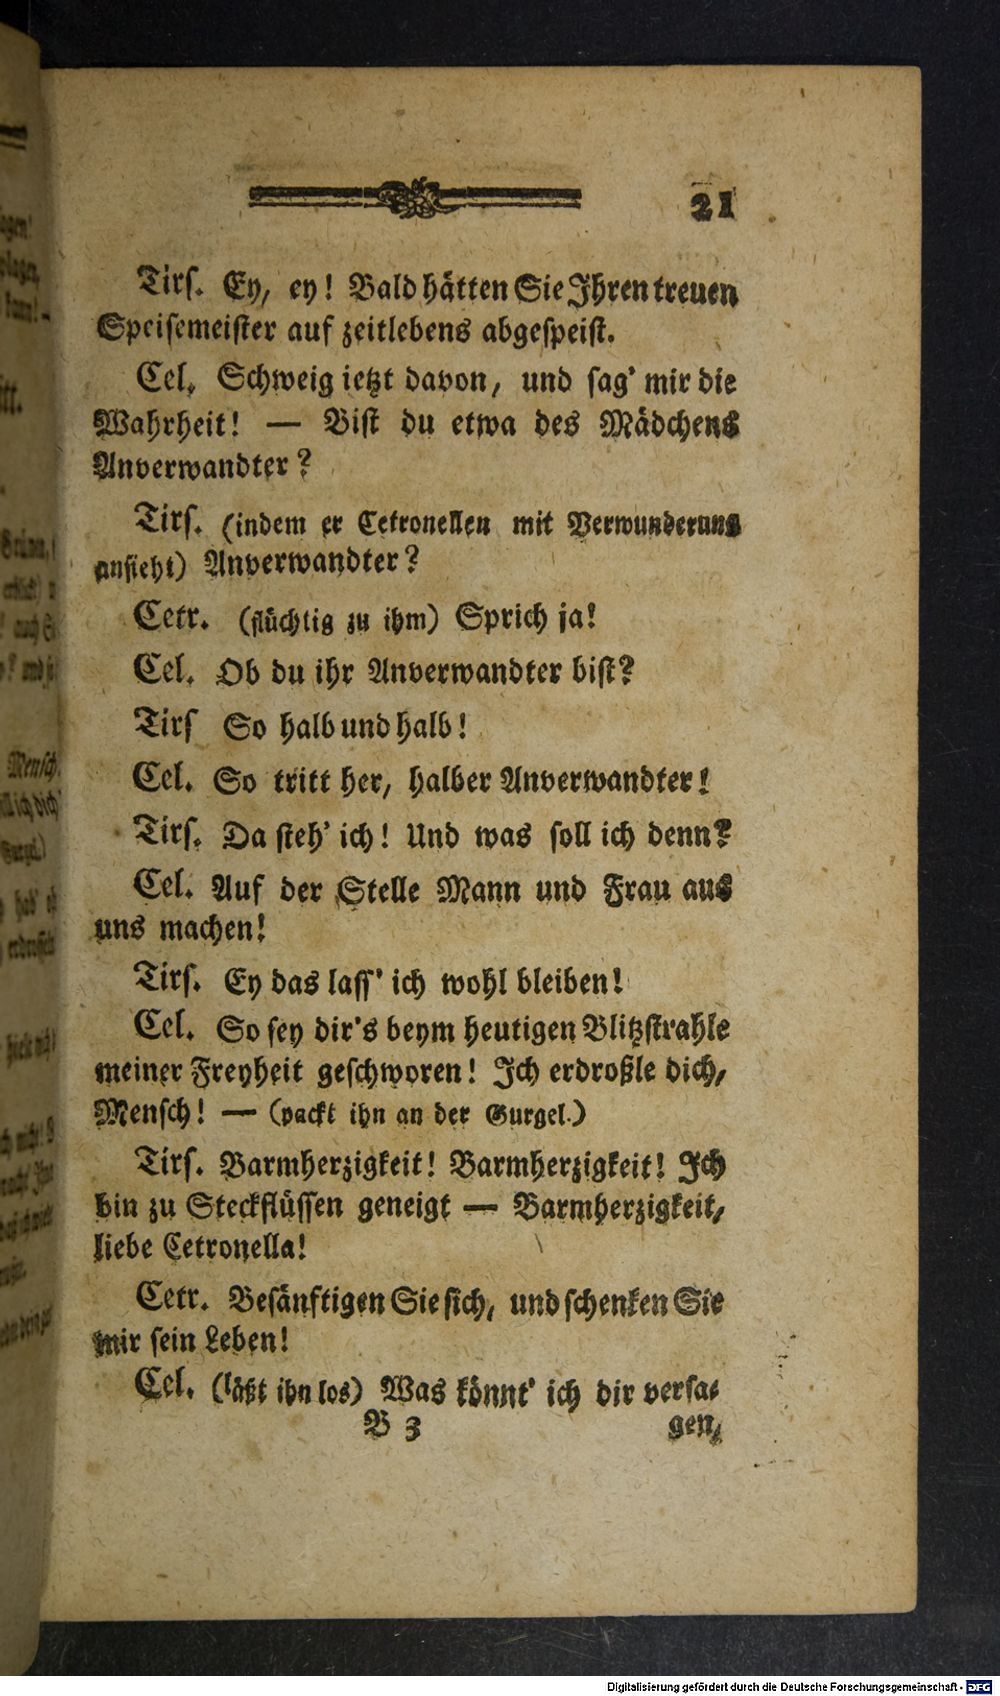 21
Tirs. Ey, ey! Bald hätten Sie Ihren treuen
Speisemeister auf zeitlebens abgespeist.
Cel. Schweig ietzt davon, und sag' mir die
Wahrheit! — Bist du etwa des Mädchens
Anverwandter?
Tirs. (indem er Cetronellen mit Verwunderung
ansieht) Anverwandter?
Cetr. (flüchtig zu ihm) Sprich ja!
Cel. Ob du ihr Anverwandter bist?
Tirs So halb und halb!
Cel. So tritt her, halber Anverwandter!
Tirs. Da steh' ich! Und was soll ich denn?
Cel. Auf der Stelle Mann und Frau aus
uns machen!
Tirs. Ey das lass' ich wohl bleiben!
Cel. So sey dir's beym heutigen Blitzstrahle
meiner Freyheit geschworen! Ich erdroßle dich,
Mensch! — (packt ihn an der Gurgel.)
Tirs. Barmherzigkeit! Barmherzigkeit! Ich
bin zu Steckflüssen geneigt — Barmherzigkeit,
liebe Cetronella!
Cetr. Besänftigen Sie sich, und schenken Sie
mir sein Leben!
Cel. (läßt ihn los) Was könnt' ich dir versa-
B 3 gen,
Digitalisierung gefördert durch die Deutsche Forschungsgemeinschaft - DFG